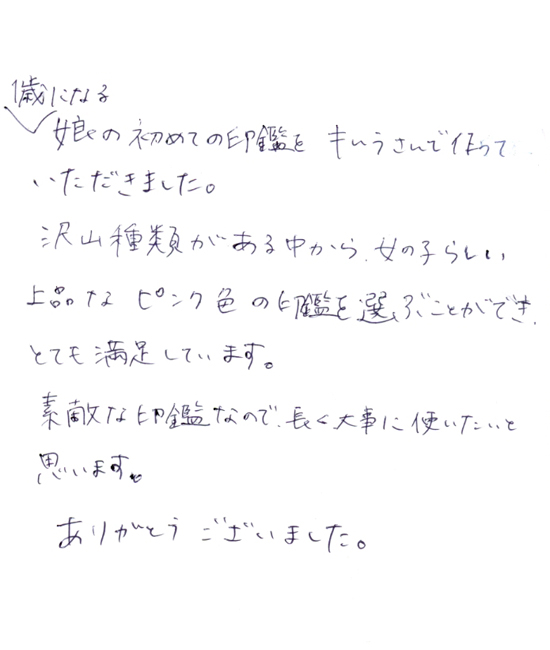 1歳になる
娘の初めての印鑑を きいうさんで作って
いただきました。
沢山種類がある中から、女の子らしい
上品な ピンク色の印鑑を選ぶことができ、
とても満足しています。
素敵な印鑑なので、長く大事に使いたいと
思います。
ありがとうございました。